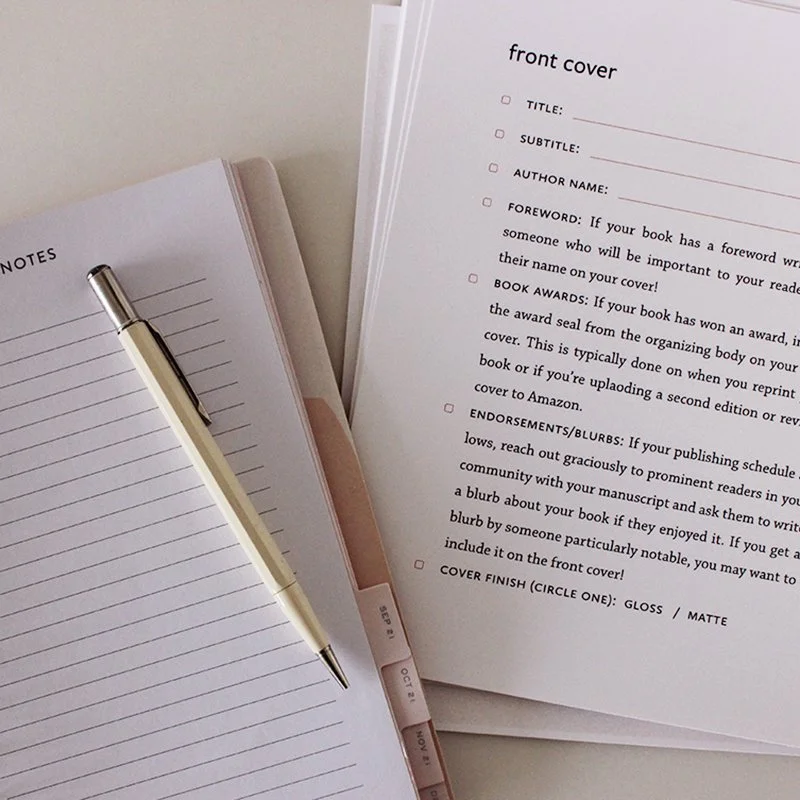 NOTES
SEP 21
OCT 21
NOV 21
front cover
TITLE:
SUBTITLE:
AUTHOR NAME:
FOREWORD: If your book has a foreword
someone who will be important to your
their name on your cover!
BOOK AWARDS: If your book has won an award,
the award seal from the organizing body on your
cover. This is typically done on when you reprint
book or if you're uplaoding a second edition or
cover to Amazon.
ENDORSEMENTS/BLURBS: If your publishing schedule
lows, reach out graciously to prominent readers in
community with your manuscript and ask them to
a blurb about your book if they enjoyed it. If you get a
blurb by someone particularly notable, you may want to
include it on the front cover!
COVER FINISH (CIRCLE ONE): GLOSS / MATTE